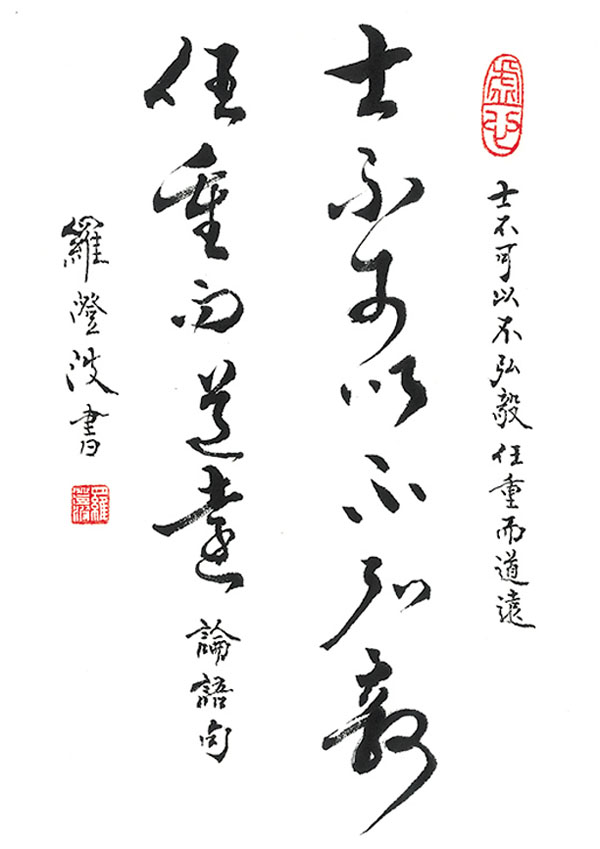 虛心
士不可以不弘毅任重而道遠
士不可以不弘毅
任重而道遠
論語句
羅澄波書